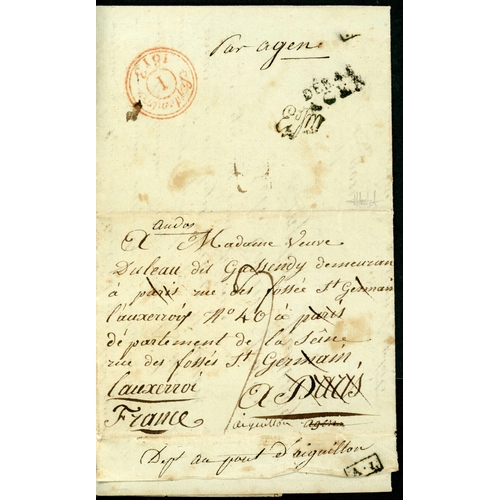 Par agen
1
Septembre
1817
DEB. 4 E
AGEN
audos
A Madame Veuve
Duleau dit Gassendy demeuran
à paris rue des fossée St Germain
l'auxerroy N° 40 à paris
département de la Seine
rue des fossés St Germain,
Lauxerroi A Paris
France aiguillon agen
Dept au pont d'aiguillon
A.L